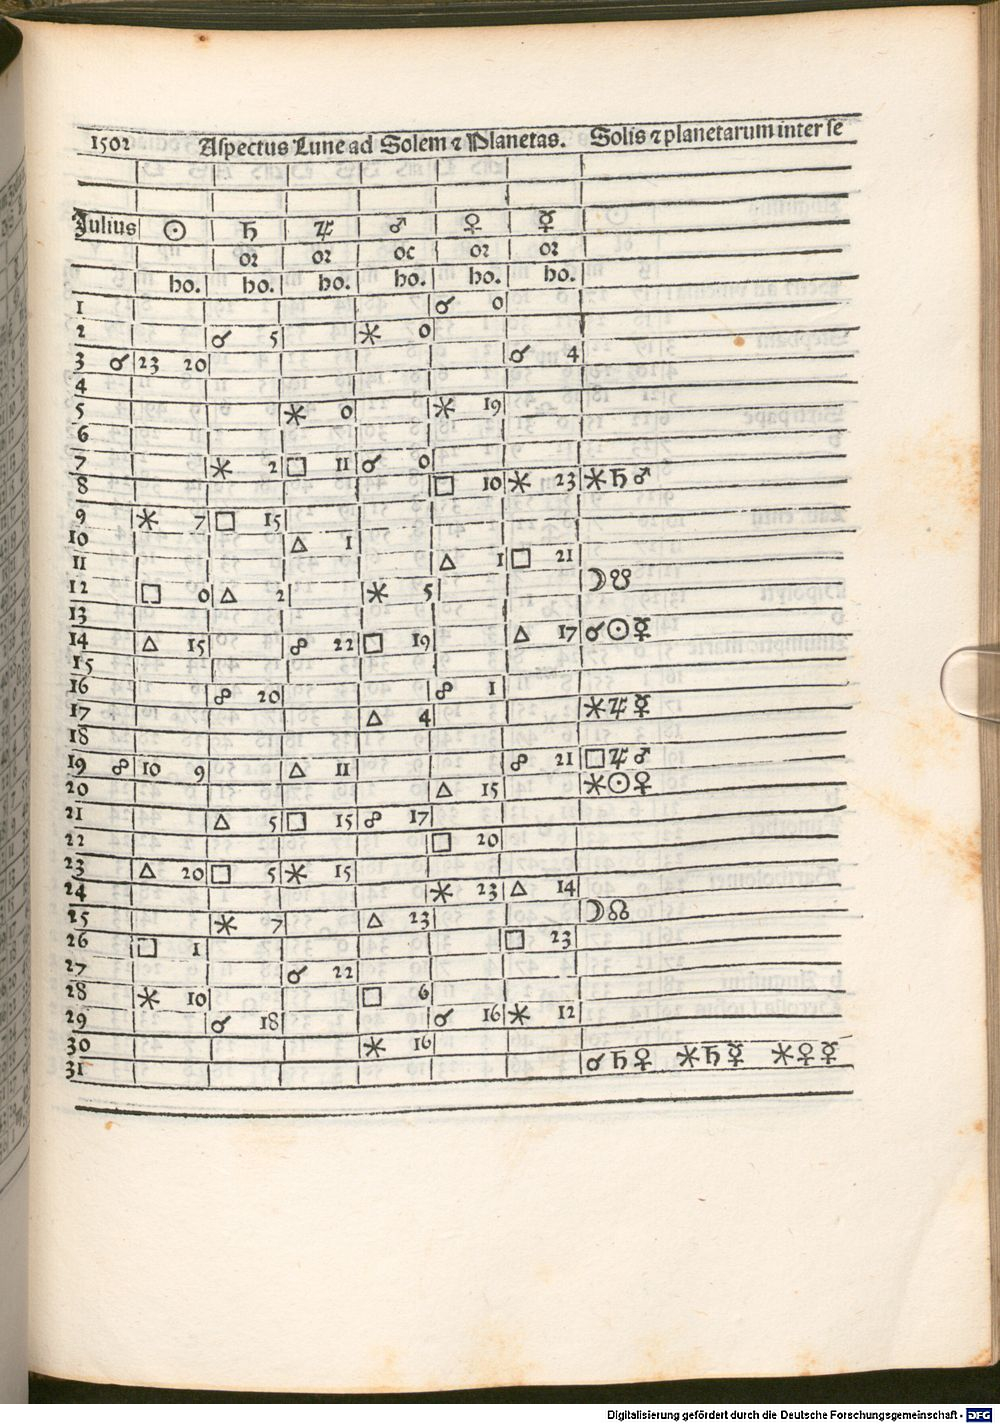 1502 Aspectus Lune ad Solem ⁊ Planetas. Solis ⁊ planetarum inter se
Julius ☉ ♄ ♃ ♂ ♀ ☿
oꝛ oꝛ oc oꝛ oꝛ
ho. ho. ho. ho. ho. ho.
1 ☌ 0
2 ☌ 5 ⚹ 0
3 ☌ 23 20 ☌ 4
4
5 ⚹ 0 ⚹ 19
6
7 ⚹ 2 □ 11 ☌ 0
8 □ 10 ⚹ 23 ⚹ ♄ ♂
9 ⚹ 7 □ 15
10 △ 1
11 △ 1 □ 21
12 □ 0 △ 2 ⚹ 5 ☽ ☋
13
14 △ 15 ☍ 22 □ 19 △ 17 ☌ ☉ ☿
15
16 ☍ 20 ☍ 1
17 △ 4 ⚹ ♃ ☿
18
19 ☍ 10 9 △ 11 ☍ 21 □ ♃ ♂
20 △ 15 ⚹ ☉ ♀
21 △ 5 □ 15 ☍ 17
22 □ 20
23 △ 20 □ 5 ⚹ 15
24 ⚹ 23 △ 14
25 ⚹ 7 △ 23 ☽ ☊
26 □ 1 □ 23
27 ☌ 22
28 ⚹ 10 □ 6
29 ☌ 18 ☌ 16 ⚹ 12
30 ⚹ 16
31 ☌ ♄ ♀ ⚹ ♄ ☿ ⚹ ♀ ☿
Digitalisierung gefördert durch die Deutsche Forschungsgemeinschaft - DFG